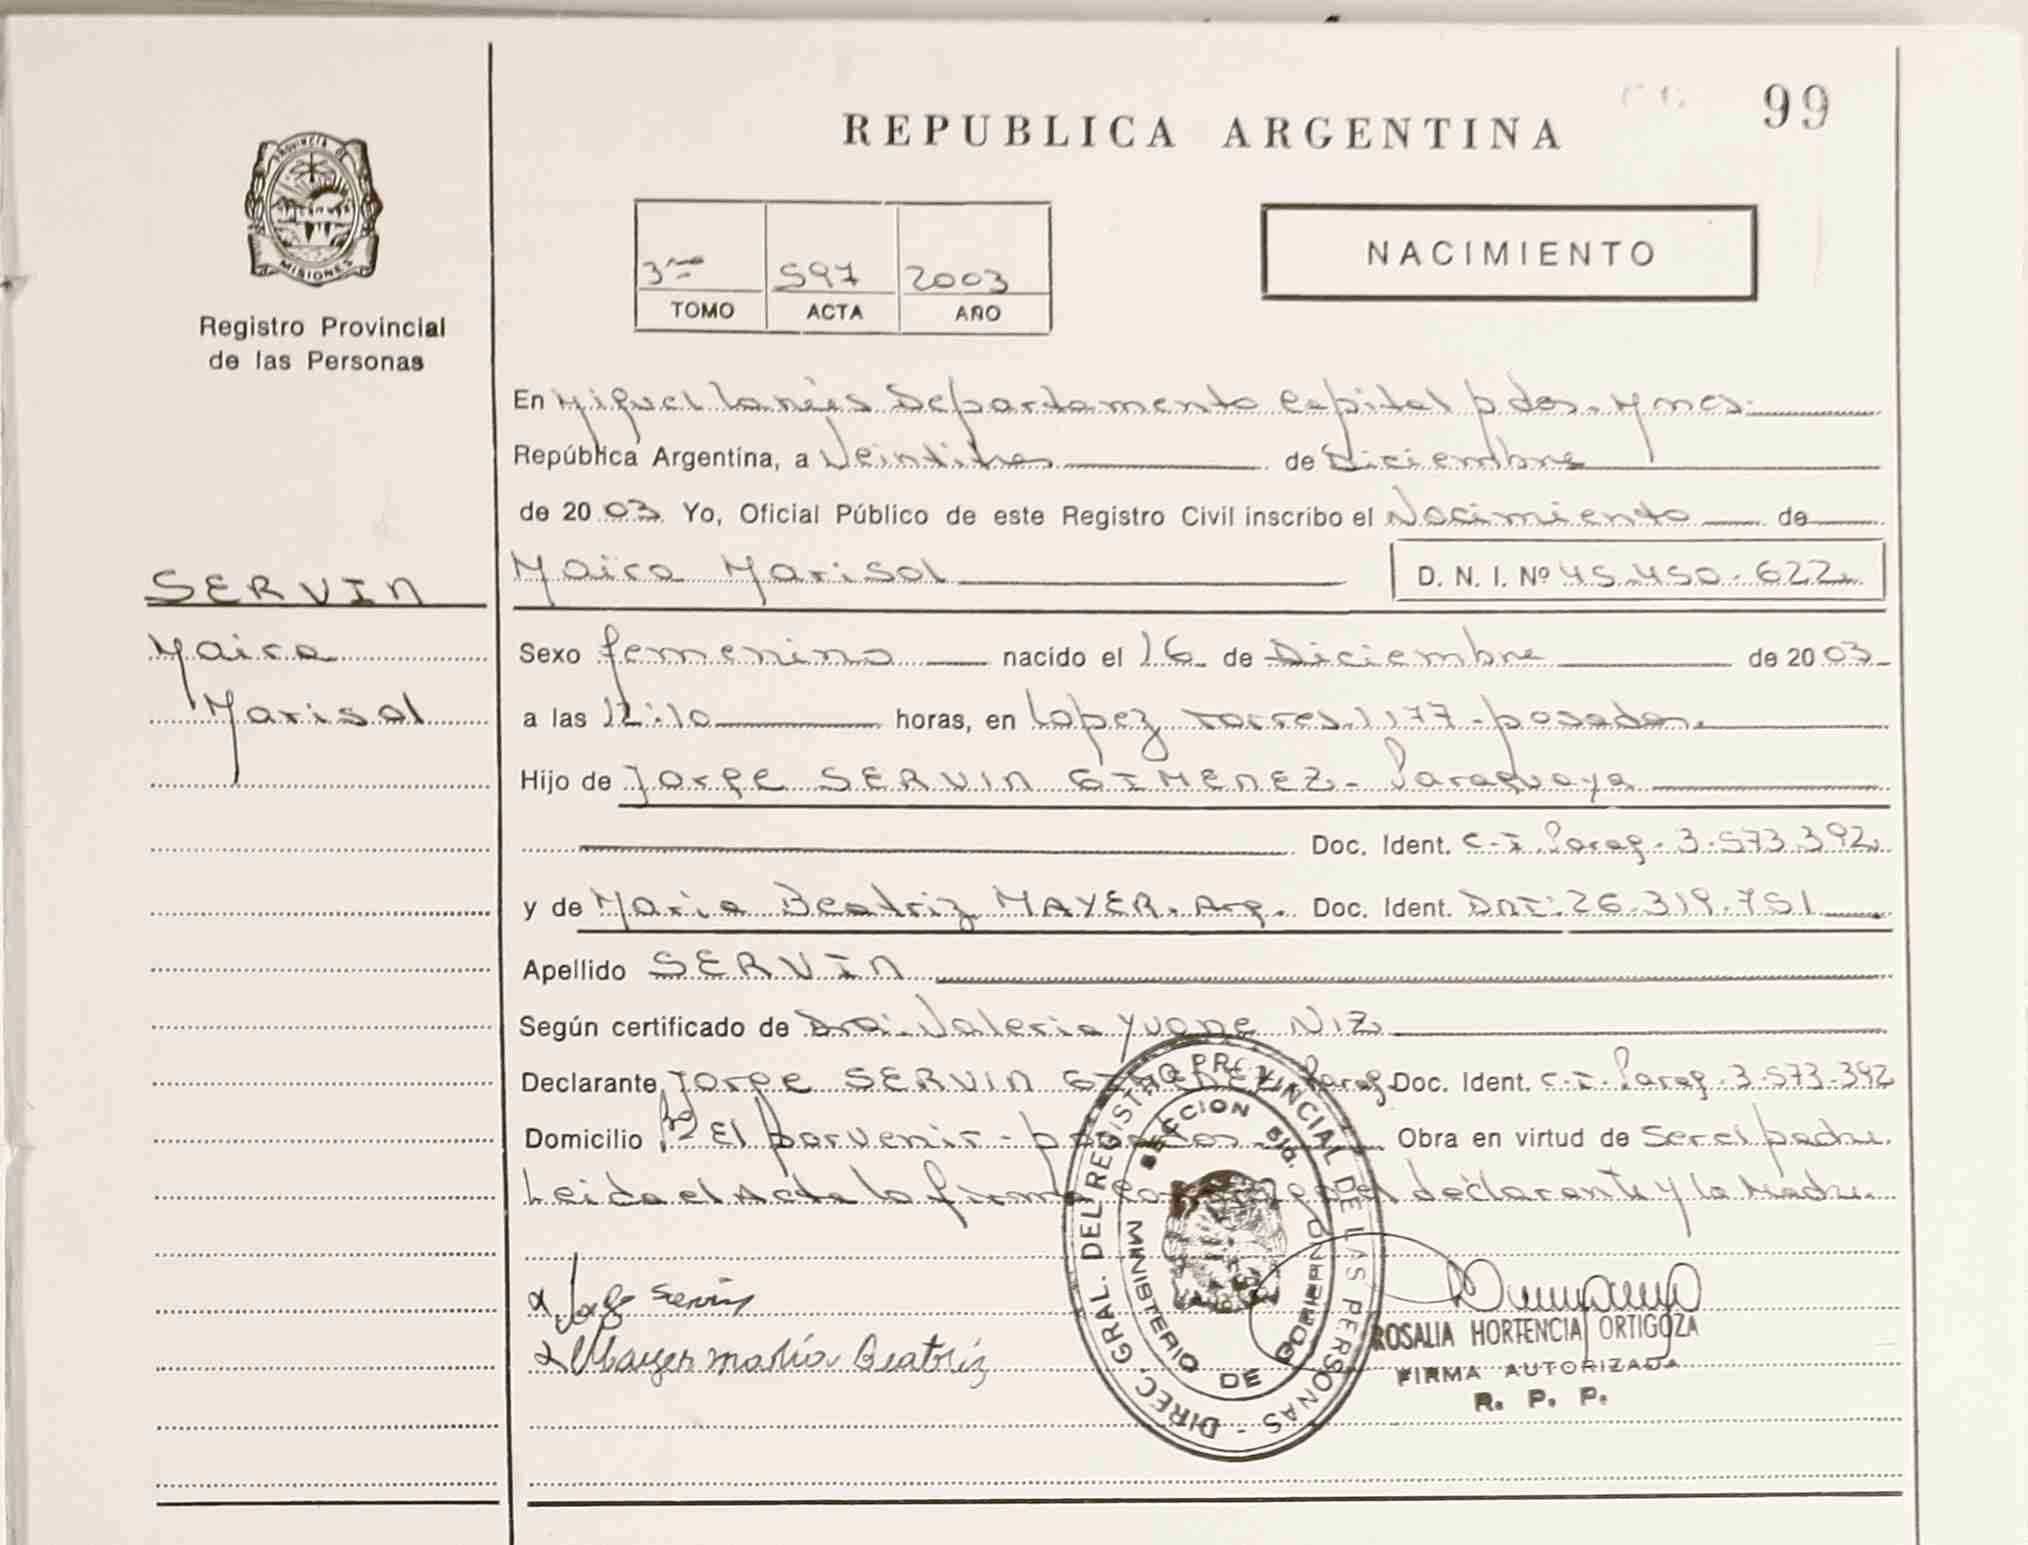 99
REPUBLICA ARGENTINA
PROVINCIA DE
MISIONES
Registro Provincial
de las Personas
3ro 597 2003
TOMO ACTA AÑO
NACIMIENTO
En Miguel Lanús Departamento Capital pdas. Mnes.
República Argentina, a Veintitres de Diciembre
de 2003 Yo, Oficial Público de este Registro Civil inscribo el Nacimiento de
Maica Marisol D. N. I. Nº 45.450.622
SERVIN
Maica
Marisol
Sexo femenino nacido el 16 de Diciembre de 2003
a las 12:10 horas, en Lopez Torres 1177 - posadas.
Hijo de Jorge SERVIN GIMENEZ - Paraguaya
Doc. Ident. C.I. Parag. 3.573.392
y de Maria Beatriz MAYER. Arg. Doc. Ident. DNI: 26.319.751
Apellido SERVIN
Según certificado de Dra. Valeria Yvone Niz
Declarante Jorge SERVIN GIMENEZ Parag. Doc. Ident. C.I. Parag. 3.573.392
Domicilio Bº El porvenir - posadas Obra en virtud de ser el padre
Leida el Acta la firma conmigo el declarante y la Madre.
Jorge Servin
Mayer maria Beatriz
DIREC. GRAL. DEL REGISTRO PROVINCIAL DE LAS PERSONAS -
MINISTERIO DE GOBIERNO
ROSALIA HORTENCIA ORTIGOZA
FIRMA AUTORIZADA
R. P. P.